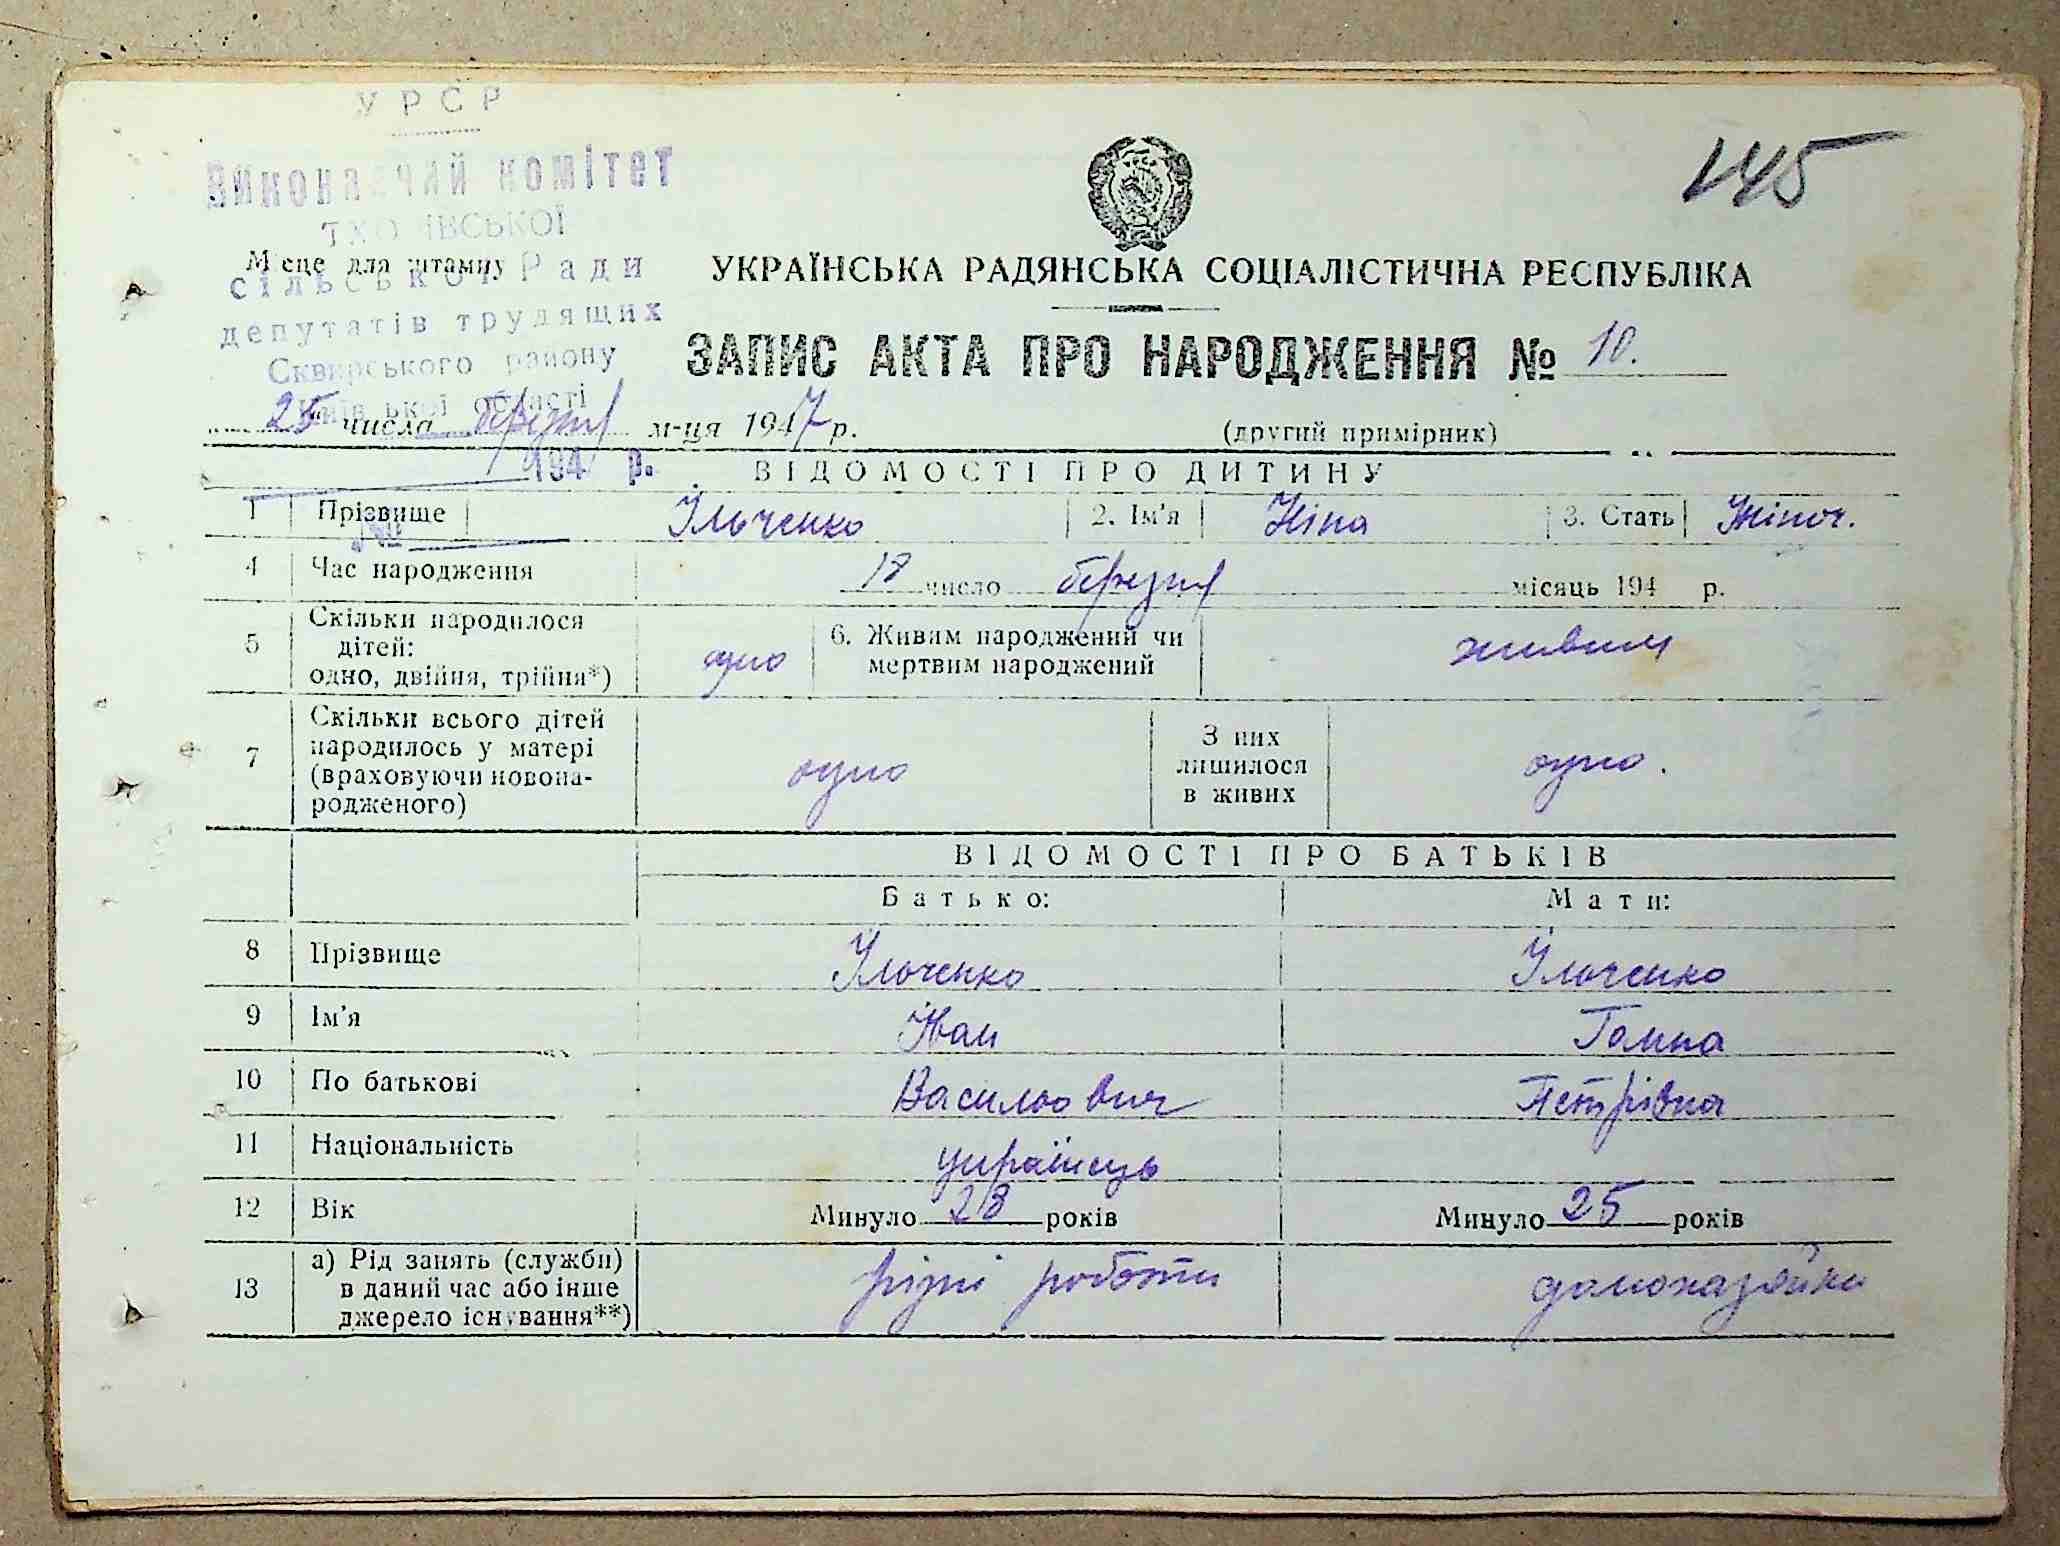 УРСР
Виконавчий комітет
145
Місце для штампу
сільської Ради
УКРАЇНСЬКА РАДЯНСЬКА СОЦІАЛІСТИЧНА РЕСПУБЛІКА
депутатів трудящих
Сквирського району
ЗАПИС АКТА ПРО НАРОДЖЕННЯ № 10.
Київської області
25 числа березня м-ця 1947 р.
(другий примірник)
194 р.
ВІДОМОСТІ ПРО ДИТИНУ
1 Прізвище Ільченко 2. Ім'я Ніна 3. Стать Жіноч.
№
4 Час народження 18 число березня місяць 194 р.
5 Скільки народилося дітей: одно, двійня, трійня*) одно 6. Живим народжений чи мертвим народжений живим
7 Скільки всього дітей народилось у матері (враховуючи новонародженого) одно З них лишилося в живих одно.
ВІДОМОСТІ ПРО БАТЬКІВ
Батько: Мати:
8 Прізвище Ільченко Ільченко
9 Ім'я Іван Ганна
10 По батькові Васильович Петрівна
11 Національність українець
12 Вік Минуло 28 років Минуло 25 років
13 а) Рід занять (служби) в даний час або інше джерело існування**) різні роботи домохазяйка